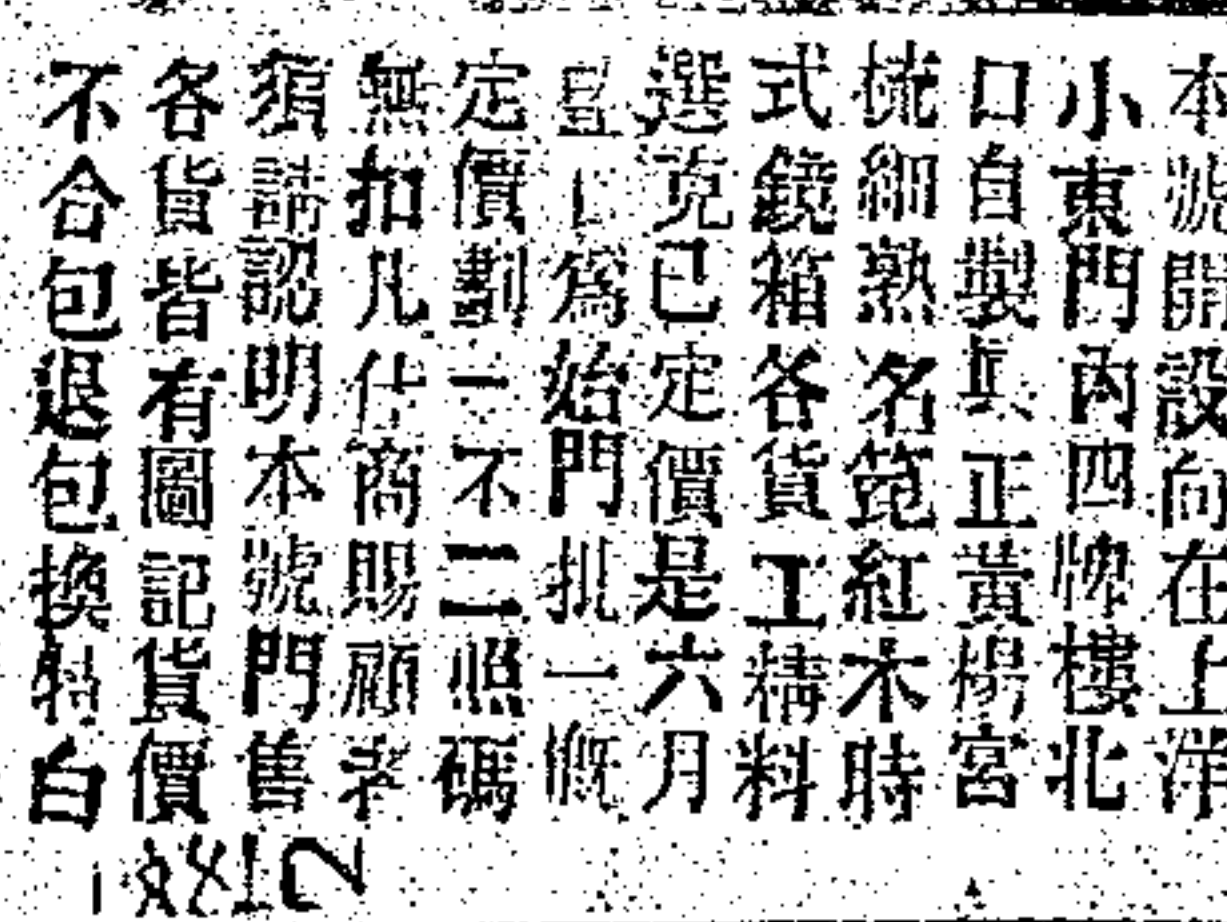 本號開設向在上洋
小東門內四牌樓北
口自製真正黃楊宮
梳細熟名篦紅木時
式鏡箱各貨工精料
選克已定價是六月
上為始門批一概
定價劃一不二照碼
無扣凡仕商賜顧者
須請認明本號門售
各貨皆有圖記貨價
不合包退包換特白